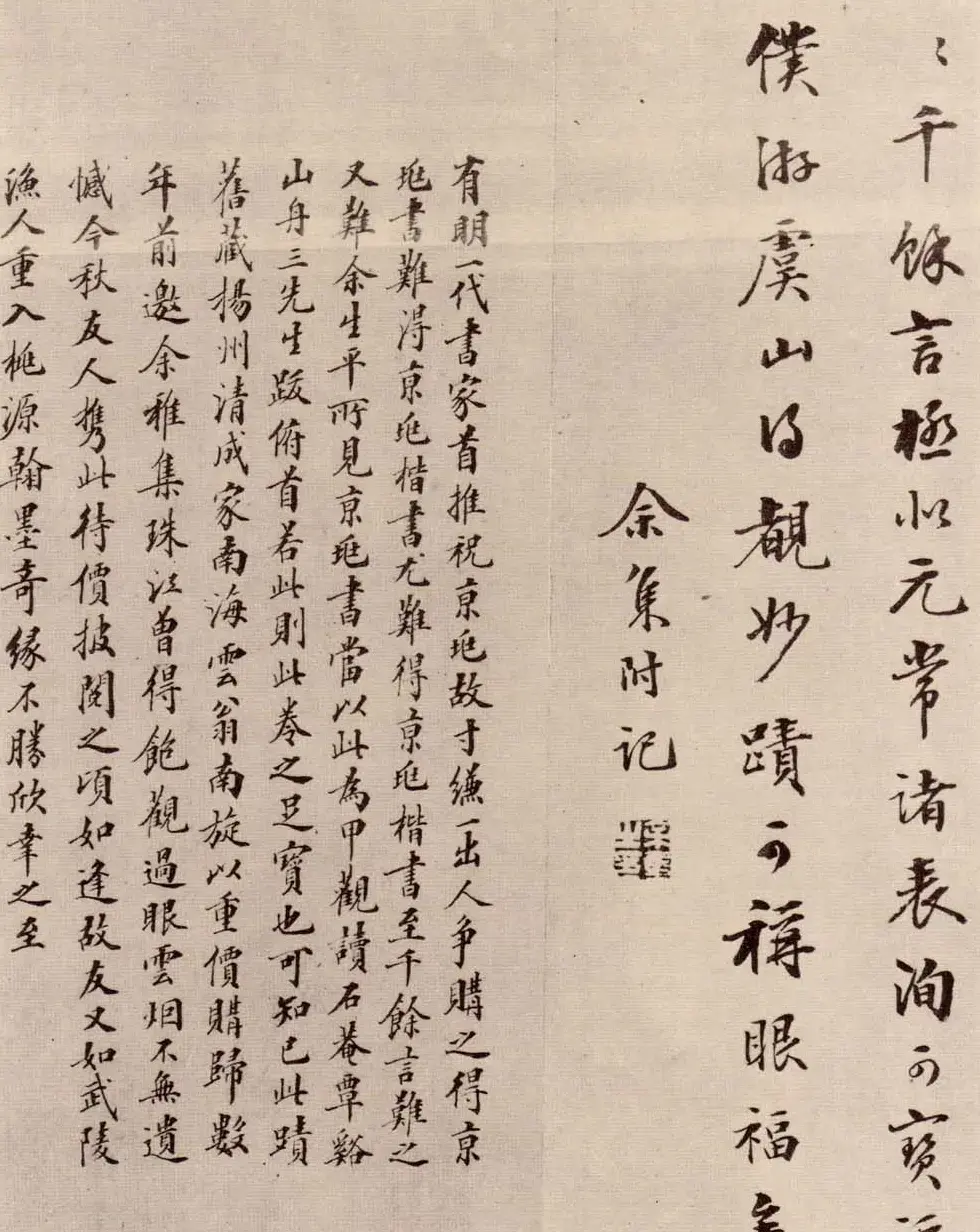 千餘言極似元常諸表洵可寶
僕游虞山得觀妙蹟可稱眼福
余集附记
有明一代書家首推祝京兆故寸縑一出人争購之得京
兆書難得京兆楷書尤難得京兆楷書至千餘言難之
又難余生平所見京兆書當以此為甲觀讀石菴覃谿
山舟三先生跋俯首若此則此卷之足寶也可知已此蹟
舊藏楊州清成家南海雲翁南旋以重價購歸數
年前邀余雅集珠江曾得飽觀過眼雲烟不無遺
憾今秋友人攜此待價披閱之頃如逢故友又如武陵
漁人重入桃源翰墨奇緣不勝欣幸之至